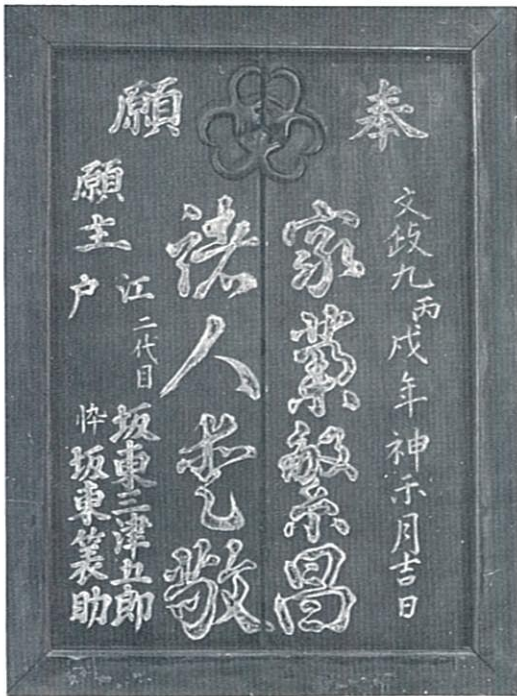 奉願
文政九丙戌年神无月吉日
家業繁昌
諸人愛敬
願主
江户
二代目
坂東三津五郎
忰坂東簑助